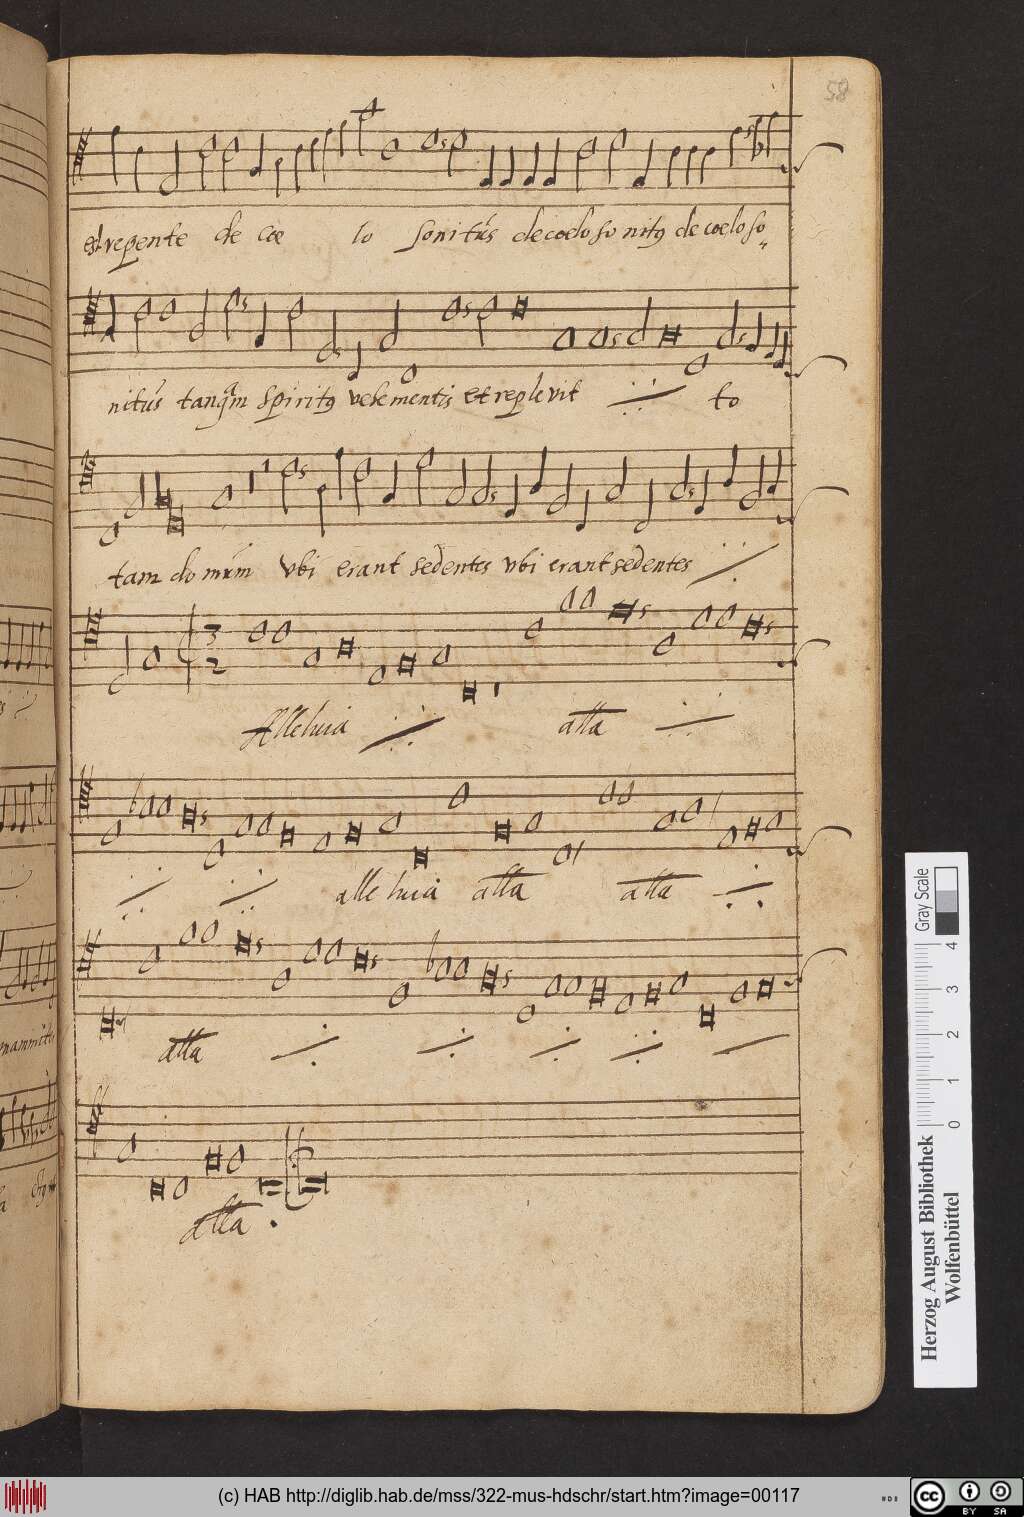 58
est repente de coe lo sonitus de coelo sonitus de coelo so
nitus tanqm spiritus vehementis et replevit to
tam domum vbi erant sedentes vbi erant sedentes
3
2
Alleluia alla
alleluia alla alla
alla
alla.
Gray Scale
0 1 2 3 4
Herzog August Bibliothek
Wolfenbüttel
(c) HAB http://diglib.hab.de/mss/322-mus-hdschr/start.htm?image=00117
cc BY SA